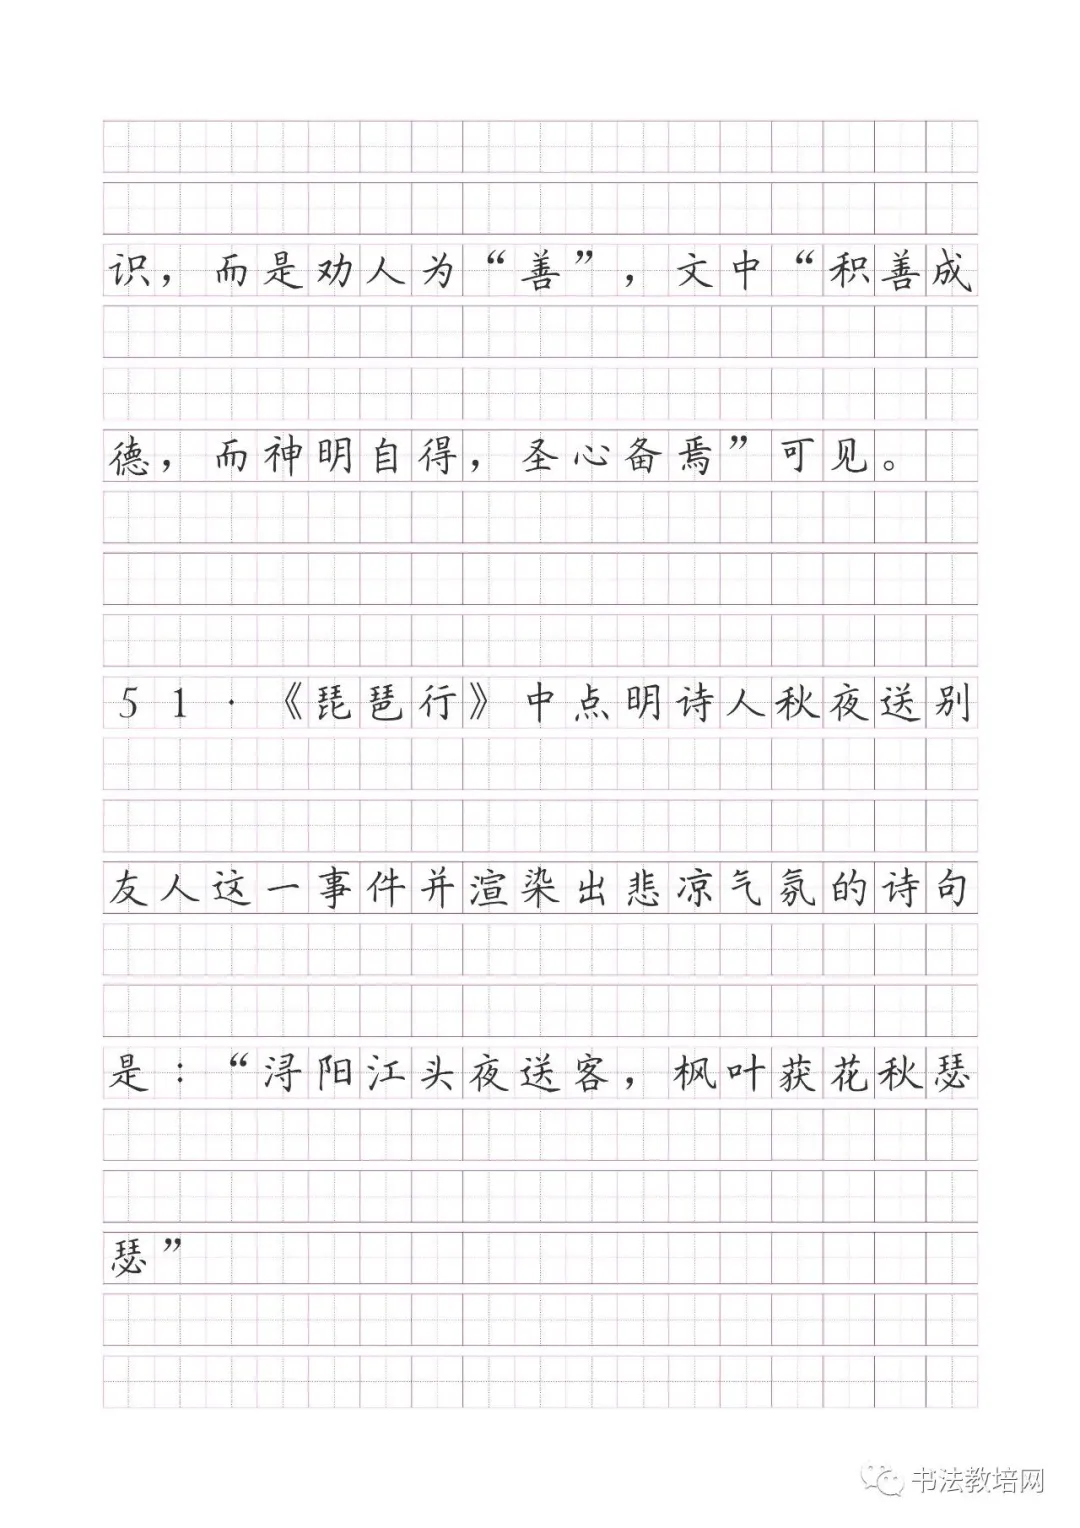 识，而是劝人为“善”，文中“积善成
德，而神明自得，圣心备焉”可见。
51·《琵琶行》中点明诗人秋夜送别
友人这一事件并渲染出悲凉气氛的诗句
是：“浔阳江头夜送客，枫叶获花秋瑟
瑟”
书法教培网